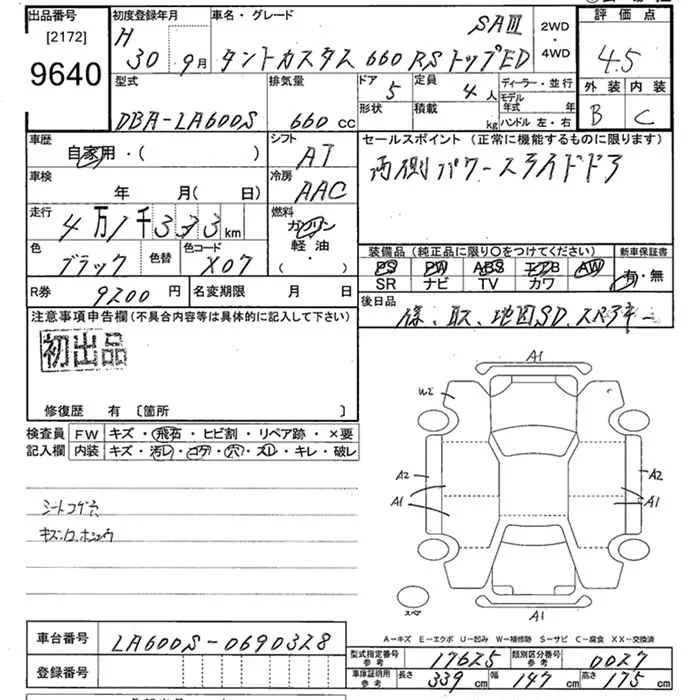 出品番号 初度登録年月 車名・グレード SAⅢ 2WD・4WD 評価点
[2172] H 30 9月 タントカスタム 660 RS トップED 4.5
9640
型式 排気量 ドア 5 定員 4人 ディーラー・並行 外装 内装
DBA-LA600S 660 cc 形状 積載 kg モデル年式 年 ハンドル 左・右 B C
車歴 シフト セールスポイント (正常に機能するものに限ります)
自家用・( ) AT 両側パワースライドドア
車検 冷房
年 月(日) AAC
走行 燃料
4万1千333km ガソリン
軽油
・( )
色 色替 色コード 装備品(純正品に限り○をつけてください) 新車保証書
ブラック X07 PS PW ABS エアB AW 有・無
SR ナビ TV カワ
R券 9200円 名変期限 月 日 後日品
保、取、地図SD、スペアキー
注意事項申告欄(不具合内容等は具体的に記入して下さい)
初出品
修復歴 有 〔箇所 〕
検査員 FW キズ・飛石・ヒビ割・リペア跡・×要
記入欄 内装 キズ・汚レ・コゲ・穴・スレ・キレ・破レ
シートコゲ穴
A1
W2
A2 A2
A1 A1
スペア
A1
A-キズ E-エクボ U-凹み W-補修跡 S-サビ C-腐食 XX-交換済
車台番号 LA600S-0690328
型式指定番号 参考 17625 類別区分番号 参考 0027
登録番号
車庫証明用 参考 長さ 339cm 幅 147cm 高さ 175cm